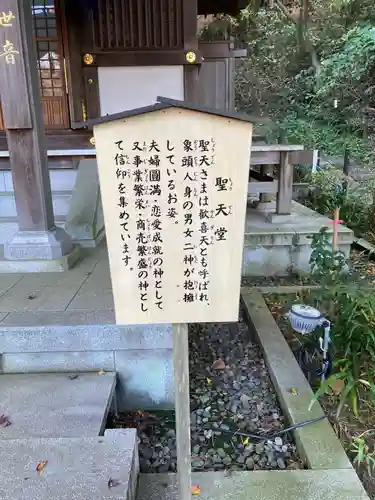 聖天堂
聖天さまは歓喜天とも呼ばれ、
象頭人身の男女二神が抱擁
しているお姿。
夫婦円満・恋愛成就の神として
又事業・商売繁盛の神とし
て信仰を集めています。
世音